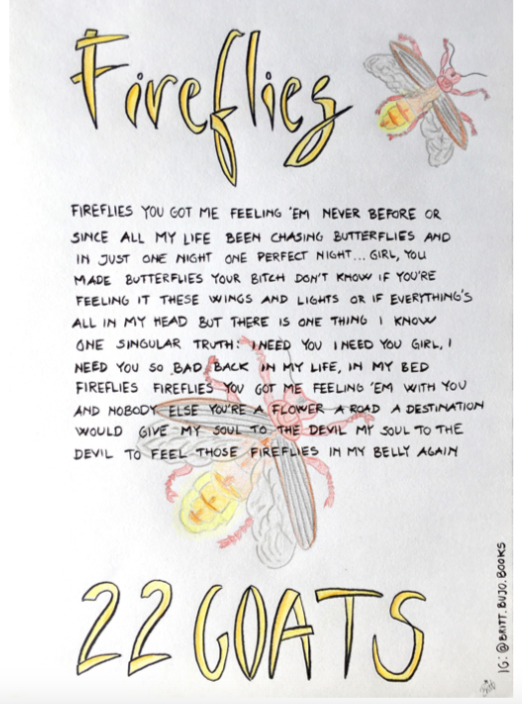 Fireflies
FIREFLIES YOU GOT ME FEELING 'EM NEVER BEFORE OR
SINCE ALL MY LIFE BEEN CHASING BUTTERFLIES AND
IN JUST ONE NIGHT ONE PERFECT NIGHT... GIRL, YOU
MADE BUTTERFLIES YOUR BITCH DON'T KNOW IF YOU'RE
FEELING IT THESE WINGS AND LIGHTS OR IF EVERYTHING'S
ALL IN MY HEAD BUT THERE IS ONE THING I KNOW
ONE SINGULAR TRUTH: I NEED YOU I NEED YOU GIRL, I
NEED YOU SO BAD BACK IN MY LIFE, IN MY BED
FIREFLIES FIREFLIES YOU GOT ME FEELING 'EM WITH YOU
AND NOBODY ELSE YOU'RE A FLOWER A ROAD A DESTINATION
WOULD GIVE MY SOUL TO THE DEVIL MY SOUL TO THE
DEVIL TO FEEL THOSE FIREFLIES IN MY BELLY AGAIN
22 GOATS
IG: @BRITT.BUJO.BOOKS